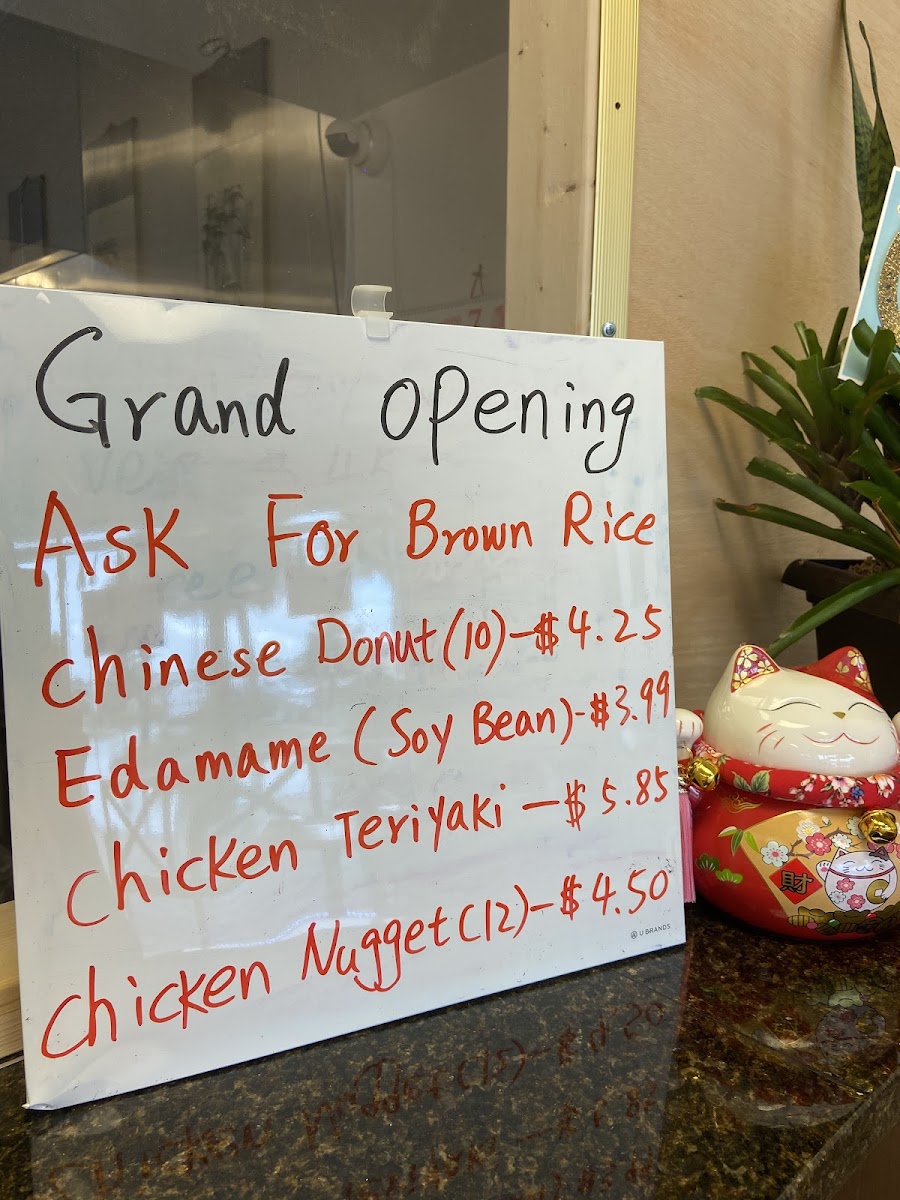 Grand opening
Ask For Brown Rice
chinese Donut (10) - $ 4.25
Edamame (Soy Bean) - $3.99
chicken Teriyaki - $ 5.85
chicken Nugget (12) - $ 4.50
U BRANDS
財